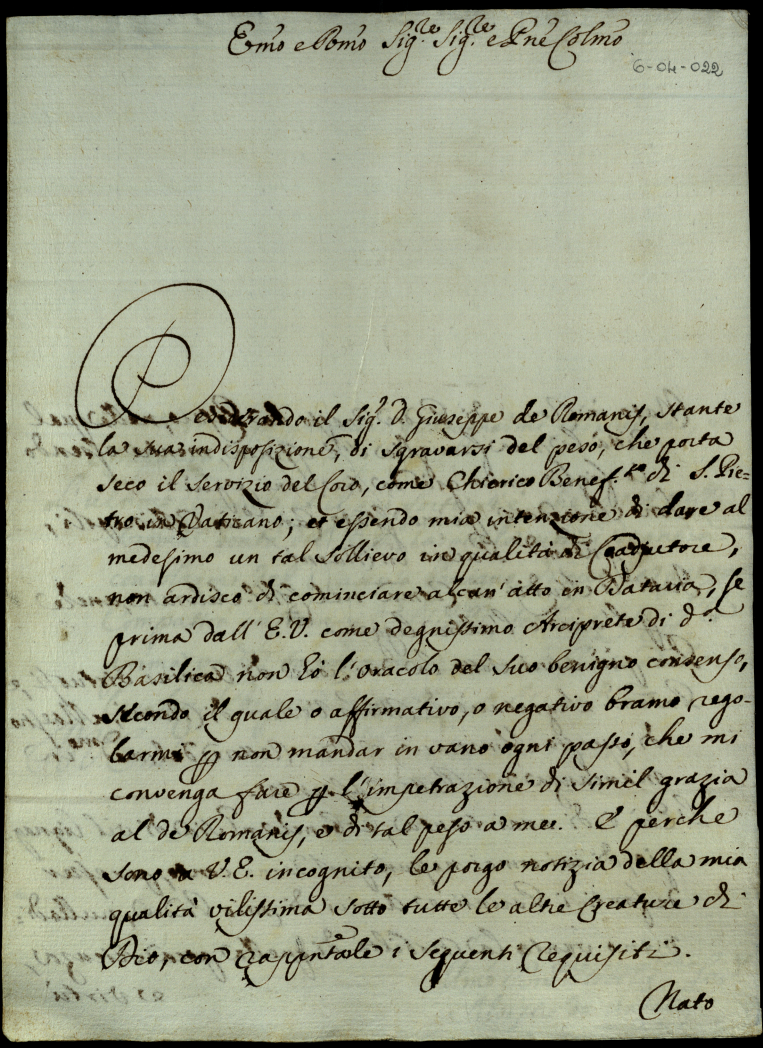 Em̃o e Rm̃o Sig.re Sig.re e Prñe Colm̃o
6-04-022
Desiderando il Sig.r D. Giuseppe de Romanis, stante
la sua indisposizione, di sgravarsi del peso, che porta
seco il servizio del Coro, come Chierico Benef.to di S. Pie=
tro in Vaticano; et essendo mia intenzione di dare al
medesimo un tal sollievo in qualità di Coadjutore,
non ardisco di cominciare alcun' atto in Dataria, se
prima dall' E.V. come degnissimo Arciprete di d.a
Basilica non hò l'oracolo del suo benigno consenso,
secondo il quale o affirmativo, o negativo bramo rego-
larmi p non mandar in vano ogni passo, che mi
convenga fare p l'impetrazione di simil grazia
al de Romanis, e di tal peso a me. E perche
sono a V.E. incognito, le porgo notizia della mia
qualità vilissima sotto tutte le altre Creature di
Dio, con rappñtarle i seguenti requisiti.
Nato